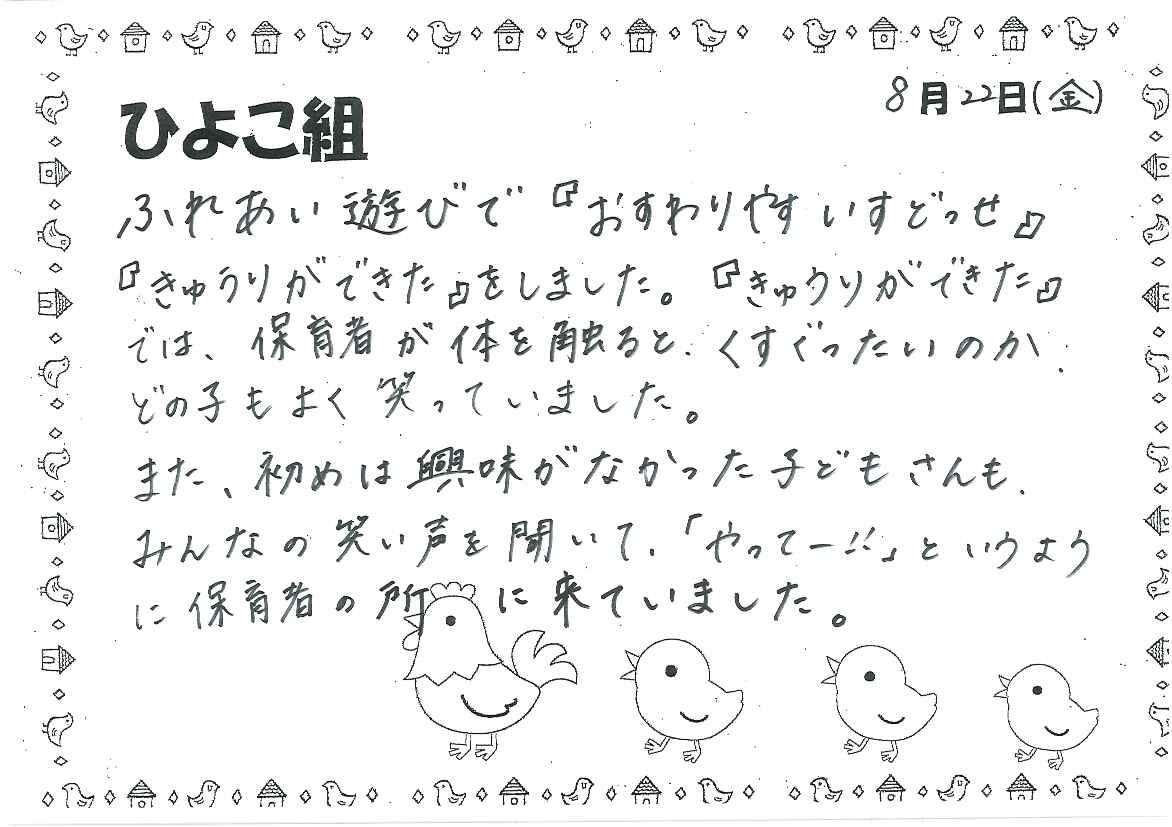 8月22日(金)
ひよこ組
ふれあい遊びで『おすわりやすいすどっせ』
『きゅうりができた』をしました。『きゅうりができた』
では、保育者が体を触ると、くすぐったいのか、
どの子もよく笑っていました。
また、初めは興味がなかった子どもさんも、
みんなの笑い声を聞いて、「やってー!!」というよう
に保育者の所に来ていました。